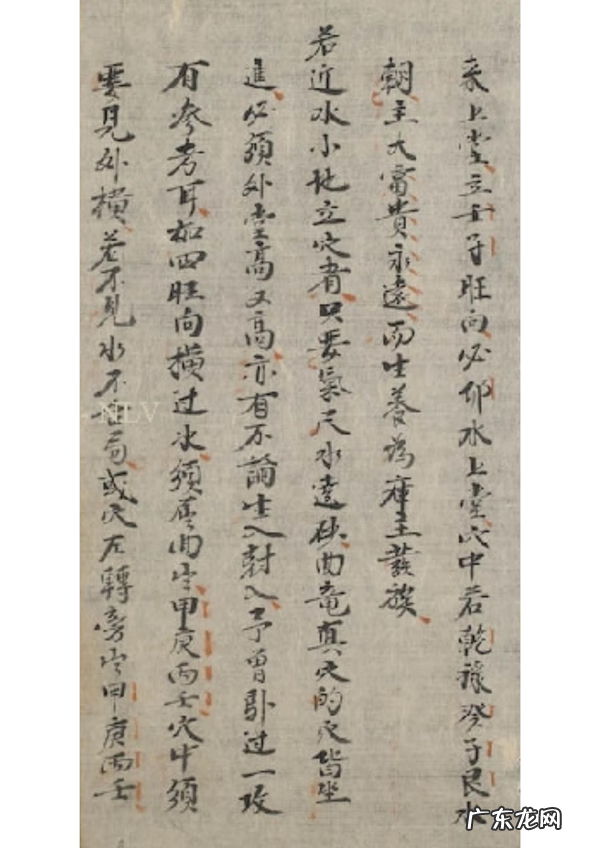 来上堂立壬子旺向必仰水上堂穴中若乾禄癸子艮水
朝主大富貴永遠而生養為庫主發族
若近水小地立穴者只要氣尺水遶砂曲竜真穴的穴皆坐
進必須外堂高又高亦有不論生入尅入予曾卧过一攷
有参考耳如四旺向横过水须屈曲出甲庚丙壬穴中须
要見外横若不見水不 局或穴左轉旁出甲庚丙壬
NLV
广东龙网